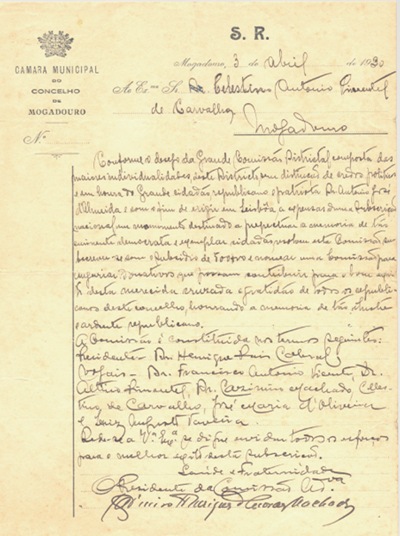 S. R.
CAMARA MUNICIPAL
DO
CONCELHO
DE
MOGADOURO
N.º
Mogadouro, 3 de Abril de 1930
Ao Ex.mo Sr. Dr. Celestino Antonio Pimentel
de Carvalho
Mogadouro
Conforme o desejo da Grande Comissão Districtal composta das
maiores individualidades deste Districto sem distinção de credo politico
e em honra do Grande cidadão republicano e patriota Dr. Antonio José
d'Almeida e com o fim de erigir em Lisbôa, a expensas duma subscrição
nacional um monumento destinado a perpetuar a memoria de tão
eminente democrata e exemplar cidadão, resolveu esta Comissão
com o subsidio de e nomear uma comissão para
angariar donativos que possam contribuir para o bom exito
desta merecida cruzada e gratidão de todos os republi-
canos deste concelho, honrando a memoria de tão ilustre
e ardente republicano.
A Comissão é constituida nos termos seguintes:
Presidente - Dr. Henrique Luis Cabral
Vogais - Dr. Francisco Antonio Vicente, Dr.
Pimentel, Dr. Casimiro Machado, Celes-
tino de Carvalho, José Maria d'Oliveira
e Luiz Augusto Taveira.
Pede-se a V. Ex.ª se digne envidar todos os esforços
para o melhor exito desta subscrição.
Saúde e Fraternidade
O Presidente da Comissão Ad.va
Casimiro Henriques de Moraes Machado